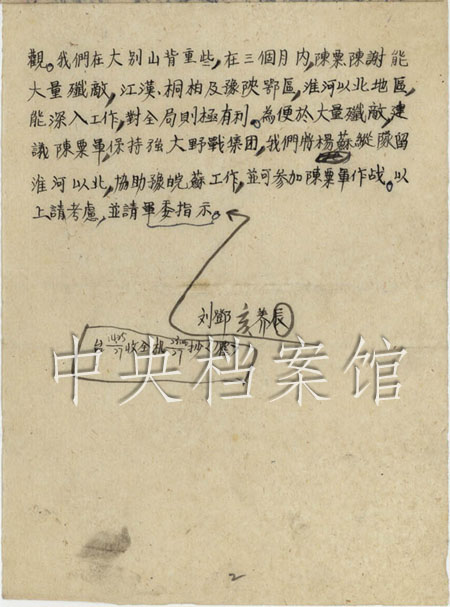 觀。我們在大别山背重些,在三個月内,陳粟、陳謝能
大量殲敵,江漢、桐柏及豫陝鄂區,淮河以北地區,
能深入工作,對全局則極有利。為便於大量殲敵,建
議陳粟軍,保持強大野戰集团,我們將楊蘇縱隊留
淮河以北,協助豫皖蘇工作,並可参加陳粟軍作战。以
上請考慮,並請軍委指示。
刘鄧 亥養辰
台 27收全机 27抄
中央档案馆
2